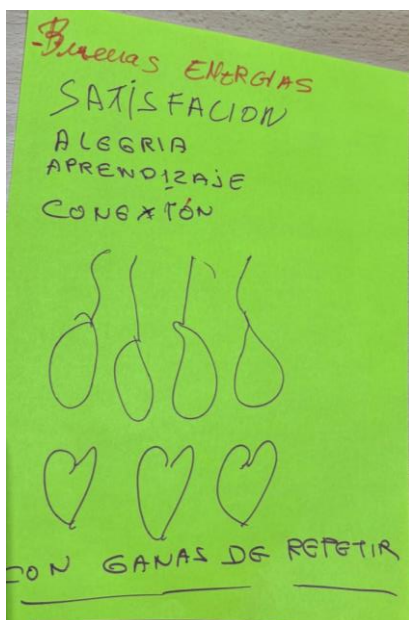 -Buenas ENERGIAS
SATISFACION
ALEGRIA
APRENDIZAJE
CONEXIÓN
CON GANAS DE REPETIR